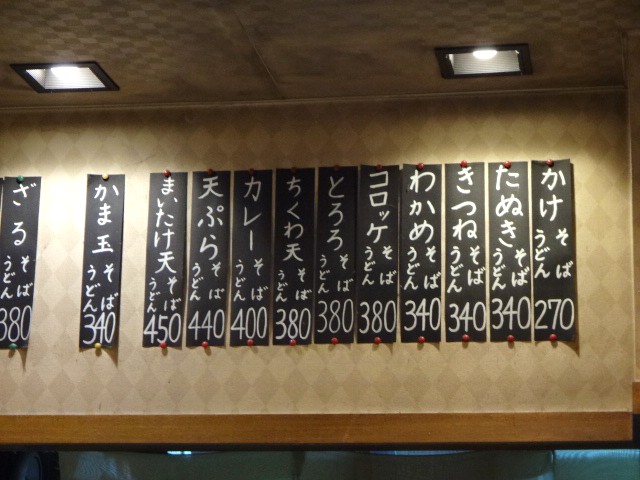 かけそばうどん270
たぬきそばうどん340
きつねそばうどん340
わかめそばうどん340
コロッケそばうどん380
とろろそばうどん380
ちくわ天そばうどん380
カレーそばうどん400
天ぷらそばうどん440
まいたけ天そばうどん450
かま玉そばうどん340
ざるそばうどん380